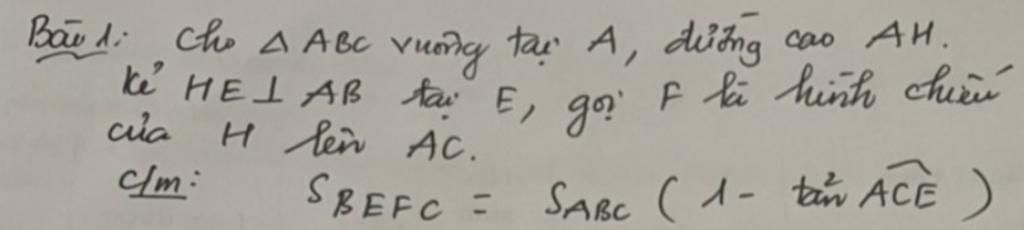 Bài 1: Cho △ ABC vuông tại A, đường cao AH.
Kẻ HE ⊥ AB tại E, gọi F là hình chiếu
của H lên AC.
c/m: S_BEFC = S_ABC ( 1 - tan² ACE )